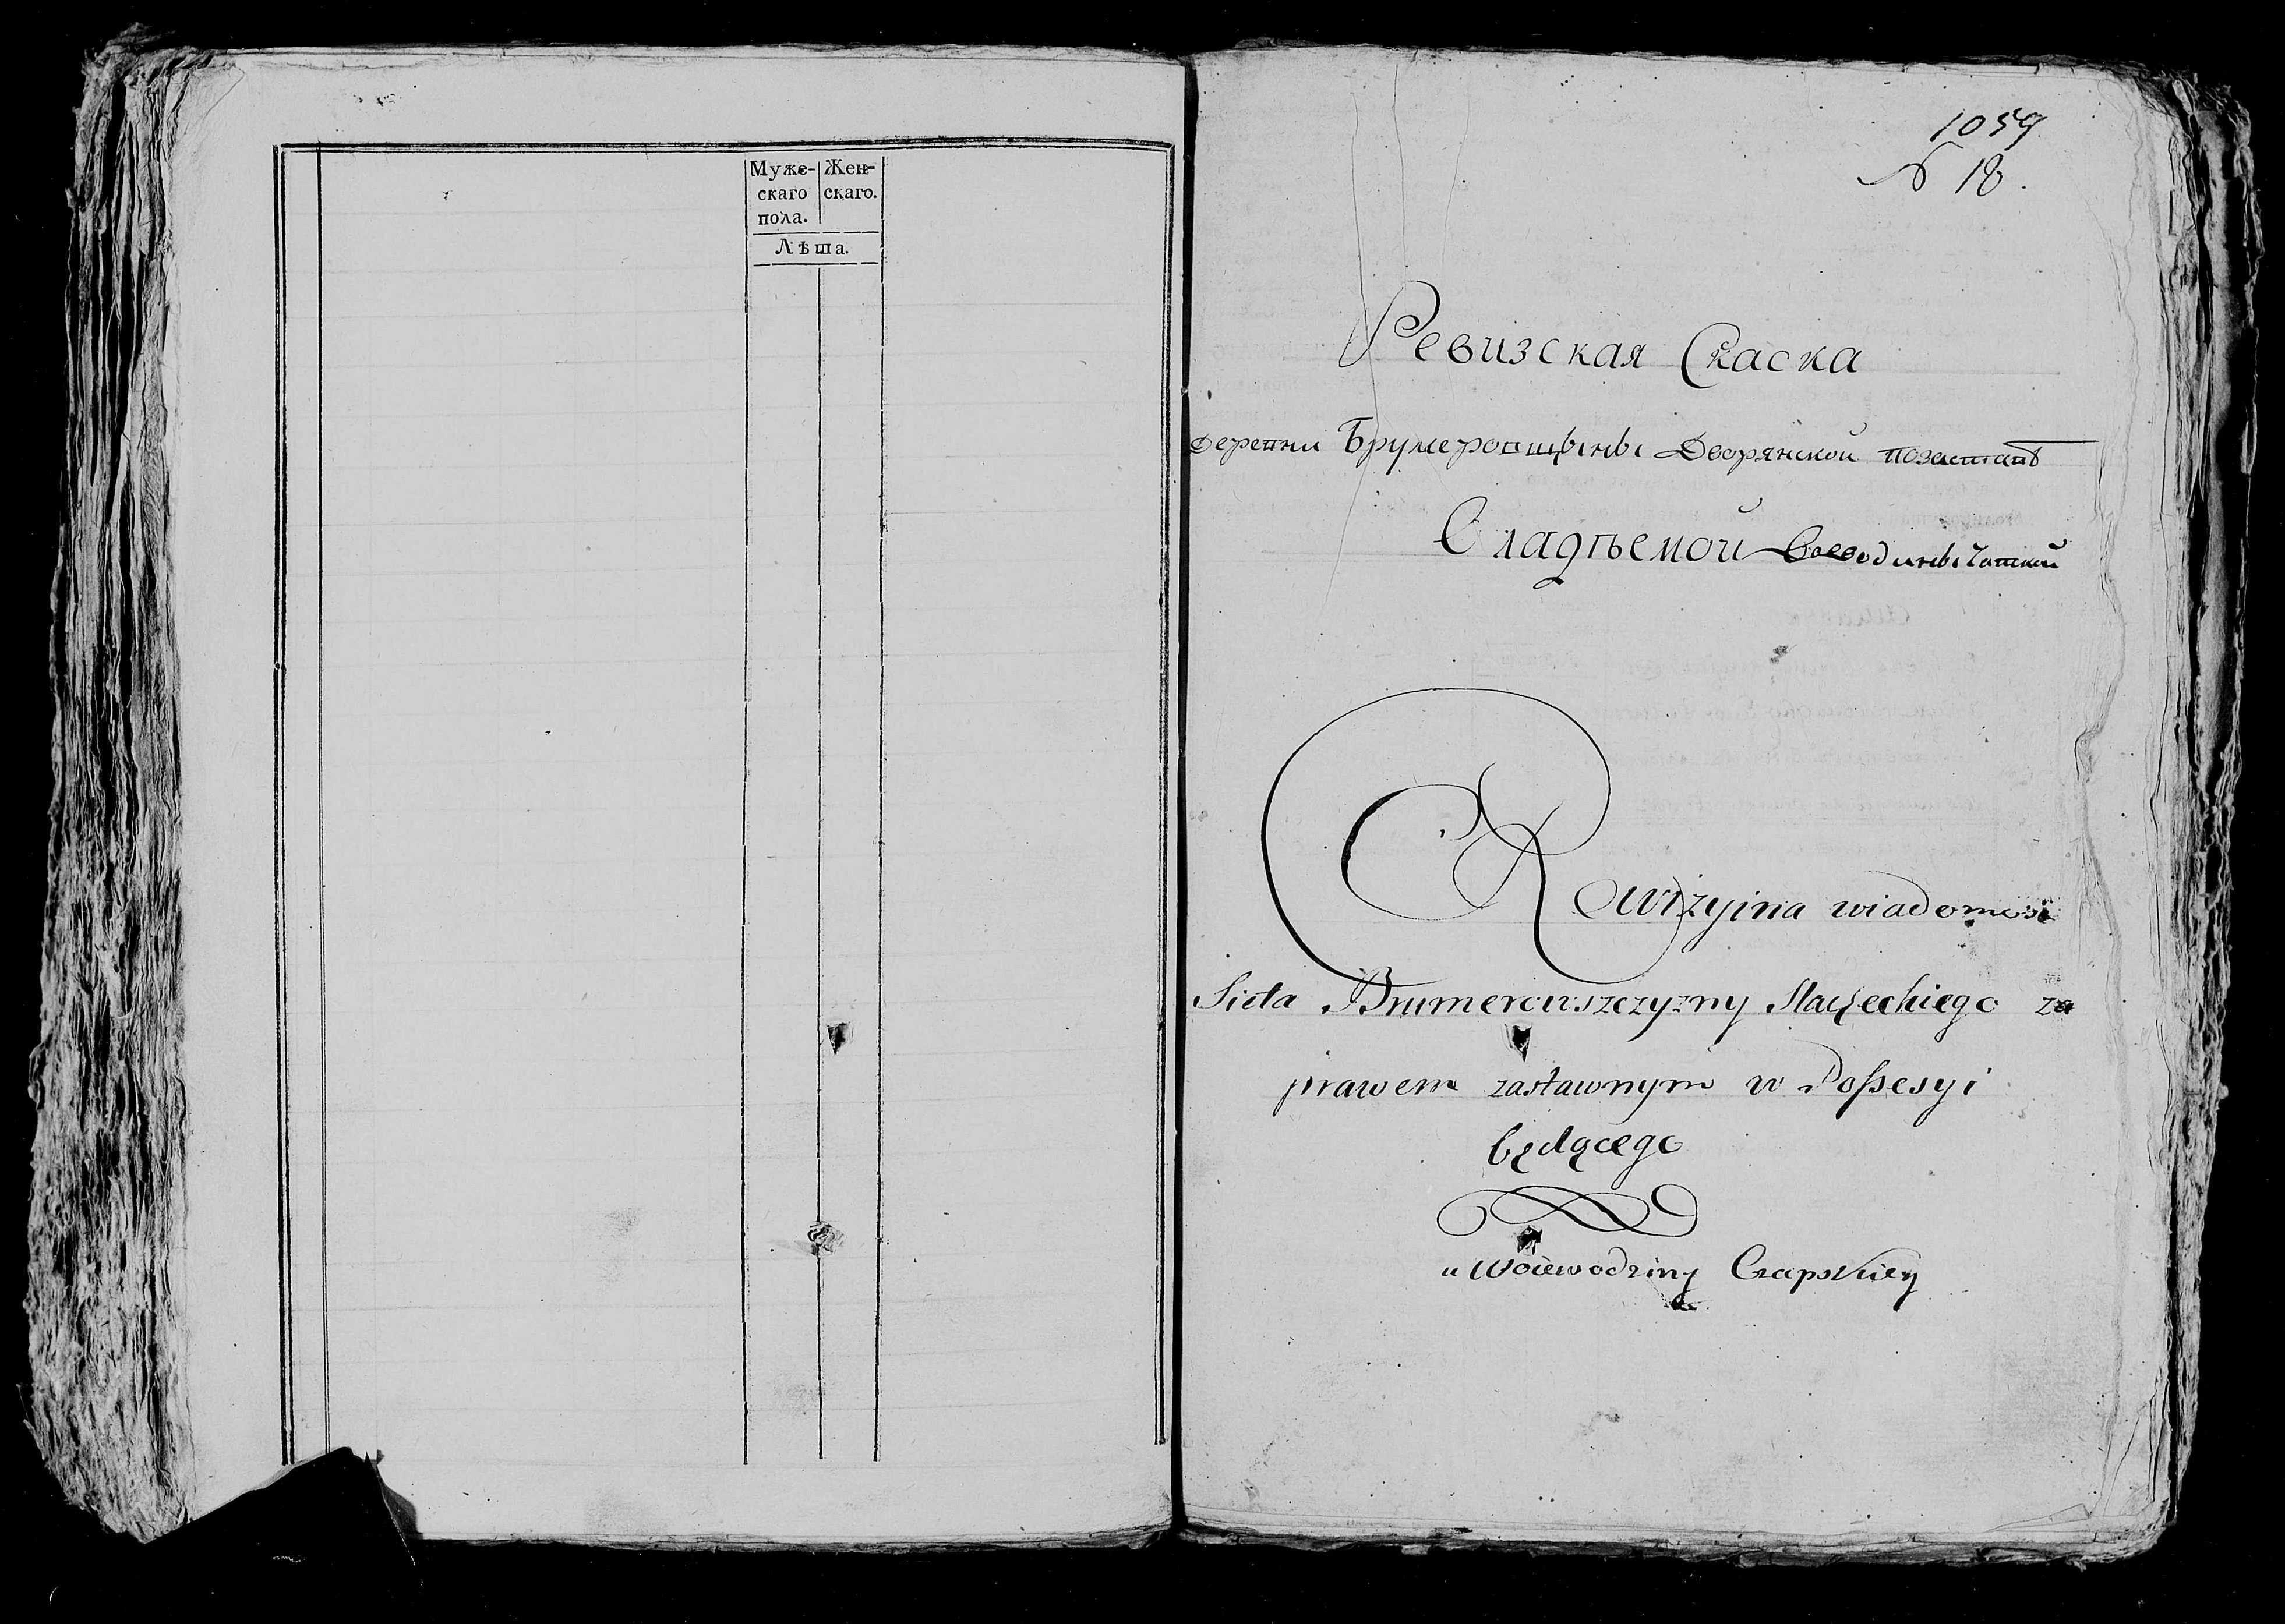 Муже- Жен-
скаго скаго.
пола.
Лѣта.
1059
№ 18.
Ревизская Скаска
деревни Брумеровщины Дворянской позаставѣ
Владѣемой Воеводины Чапской
Rewizyina wiadomość
Sieła Brumerowszczyzny Slacheckiego za
prawem zastawnym w Possesyi
będącego
u Woiewodziny Czapskiey